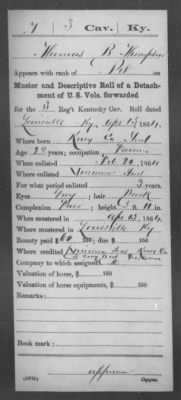 T 3 Cav. Ky.
Thomas B Thompson
Appears with rank of Pvt on
Muster and Descriptive Roll of a Detach-
ment of U. S. Vols. forwarded
for the 3 Reg't Kentucky Cav. Roll dated
Louisville Ky, Apr 13, 1864.
Where born Knox Co Ind
Age 22 years; occupation Farmer
When enlisted Feb 26, 1864.
Where enlisted Vincennes Ind
For what period enlisted 3 years.
Eyes Grey; hair Dark
Complexion; height 5 ft. 11 in.
When mustered in Apr 13, 1864.
Where mustered in Louisville Ky
Bounty paid $60 100; due $ 100
Where credited Knox Co
Company to which assigned
Valuation of horse, $ 100
Valuation of horse equipments, $ 100
Remarks:
Book mark:
Copyist.